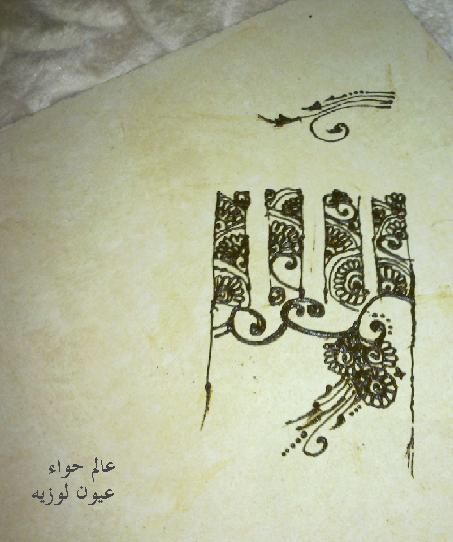 عالم حواء
عيون لوزيه